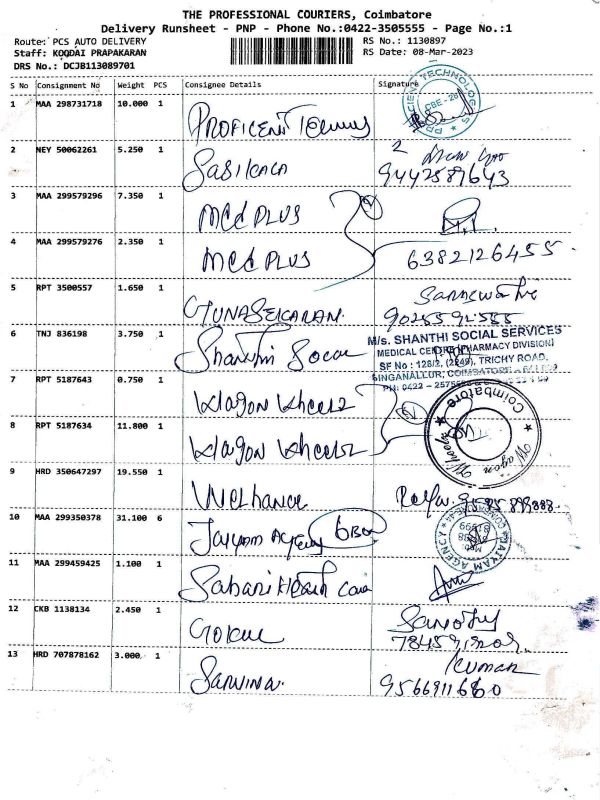 THE PROFESSIONAL COURIERS, Coimbatore
Delivery Runsheet - PNP - Phone No.:0422-3505555 - Page No.:1
Route: PCS AUTO DELIVERY RS No.: 1130897
Staff: KOODAI PRAPAKARAN RS Date: 08-Mar-2023
DRS No.: DCJB113089701
S No Consignment No Weight PCS Consignee Details Signature
1 MAA 298731718 10.000 1
2 NEY 50062261 5.250 1 SASIKALA
9442587643
3 MAA 299579296 7.350 1 Med PLUS
4 MAA 299579276 2.350 1 Med PLUS 6382126455
5 RPT 3500557 1.650 1 GUNASEKARAN
6 TNJ 836198 3.750 1 Shanthi Social
M/s. SHANTHI SOCIAL SERVICES
MEDICAL CENTRE (PHARMACY DIVISION)
SF No : 128/2, (2249), TRICHY ROAD,
SINGANALLUR, COIMBATORE
7 RPT 5187643 0.750 1 Wagon Wheels
8 RPT 5187634 11.800 1 Wagon Wheels
Coimbatore
Wagon Wheels
9 HRD 350647297 19.550 1
10 MAA 299350378 31.100 6 Jaiyam Agency 6Box
JAIYAM AGENCY
11 MAA 299459425 1.100 1 Sabari Health Care
12 CKB 1138134 2.450 1 GOKUL
13 HRD 707878162 3.000 1
Kumar
9566911680